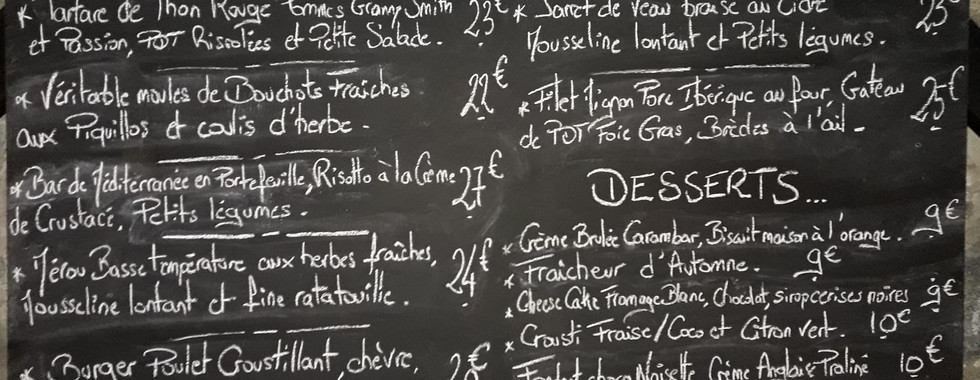 * Tartare de Thon Rouge Pommes Granny Smith 23€
et Passion, PDT Rissolées et Petite Salade.
* Véritable moules de Bouchots Fraîches 22€
aux Piquillos et coulis d'herbe.
* Bar de Méditerranée en Portefeuille, Risotto à la Crème 27€
de Crustacé, Petits légumes.
* Mérou Basse température aux herbes fraîches, 24€
Mousseline lontant et fine ratatouille.
* Burger Poulet Croustillant, chèvre,
* Jarret de Veau braisé au Cidre
Mousseline lontant et Petits légumes.
* Filet Mignon Porc Ibérique au four, Gateau 25€
de PDT Foie Gras, Brèdes à l'ail.
DESSERTS...
* Crème Brulée Carambar, Biscuit maison à l'orange. 9€
* Fraîcheur d'Automne. 9€
* Cheese Cake Fromage Blanc, Chocolat, sirop cerises noires 9€
* Crousti Fraise/Coco et Citron vert. 10€
Fondant choco Noisette Crème Anglaise Praliné 10€